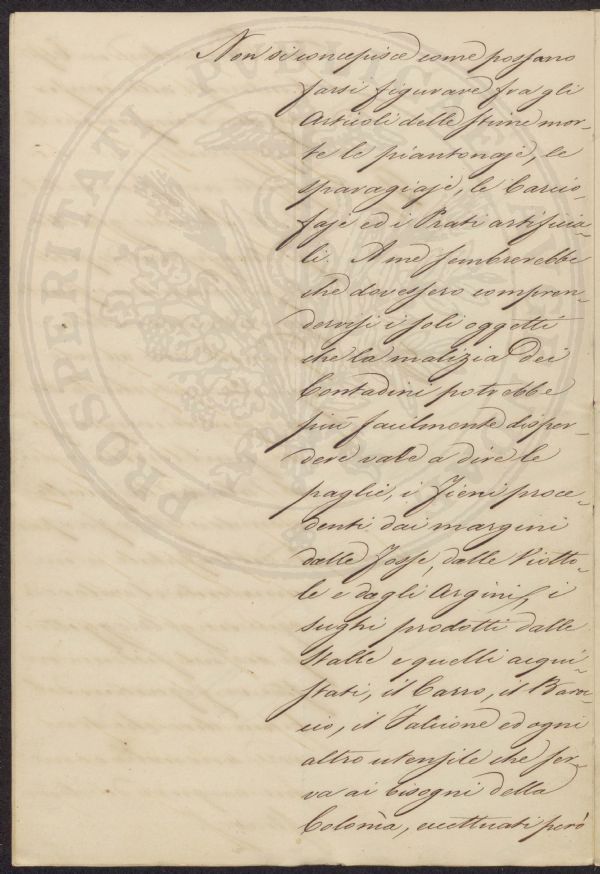 Non si concepisce come possano
farsi figurare fra gli
Articoli delle stime mor-
te le piantonaje, le
sparagiaje, le Carcio-
faje ed i Prati artificia-
li. A me sembrerebbe
che dovessero compren-
dervisi i soli oggetti
che la malizia dei
Contadini potrebbe
più facilmente disper-
dere vale a dire le
paglie, i Fieni proce-
denti dai margini
dalle Fosse, dalle Viotto-
le e dagli Argini, i
sughi prodotti dalle
Stalle e quelli acqui-
stati, il Carro, il Baroc-
cio, il Falcione ed ogni
altro utensile che ser-
va ai bisogni della
Colonìa, eccettuati però
PROSPERITATI PUBLICAE